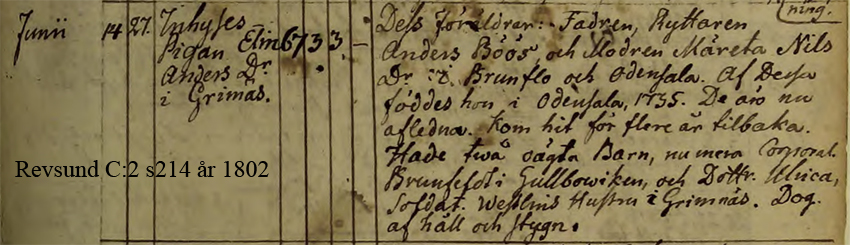 ning.
Junii 14 27. Inhyses
Pigan Elin 67 3 3. —
Anders Dr
i Grimås.
Dess föräldrar: Fadren, Ryttaren
Anders Böös, och Modren Märeta Nils
Dr i Brunflo och Odensala. Af Dessa
föddes hon i Odensala, 1735. De äro nu
afledna. Kom hit för flere år tilbaka.
Hade twå oägta Barn, nu mera Corporal.
Brunfeldt i Gullbowiken, och Dottr. Ulrica,
Soldat. Hustru i Grimnäs. Dog.
af håll och stygn.
Revsund C:2 s214 år 1802